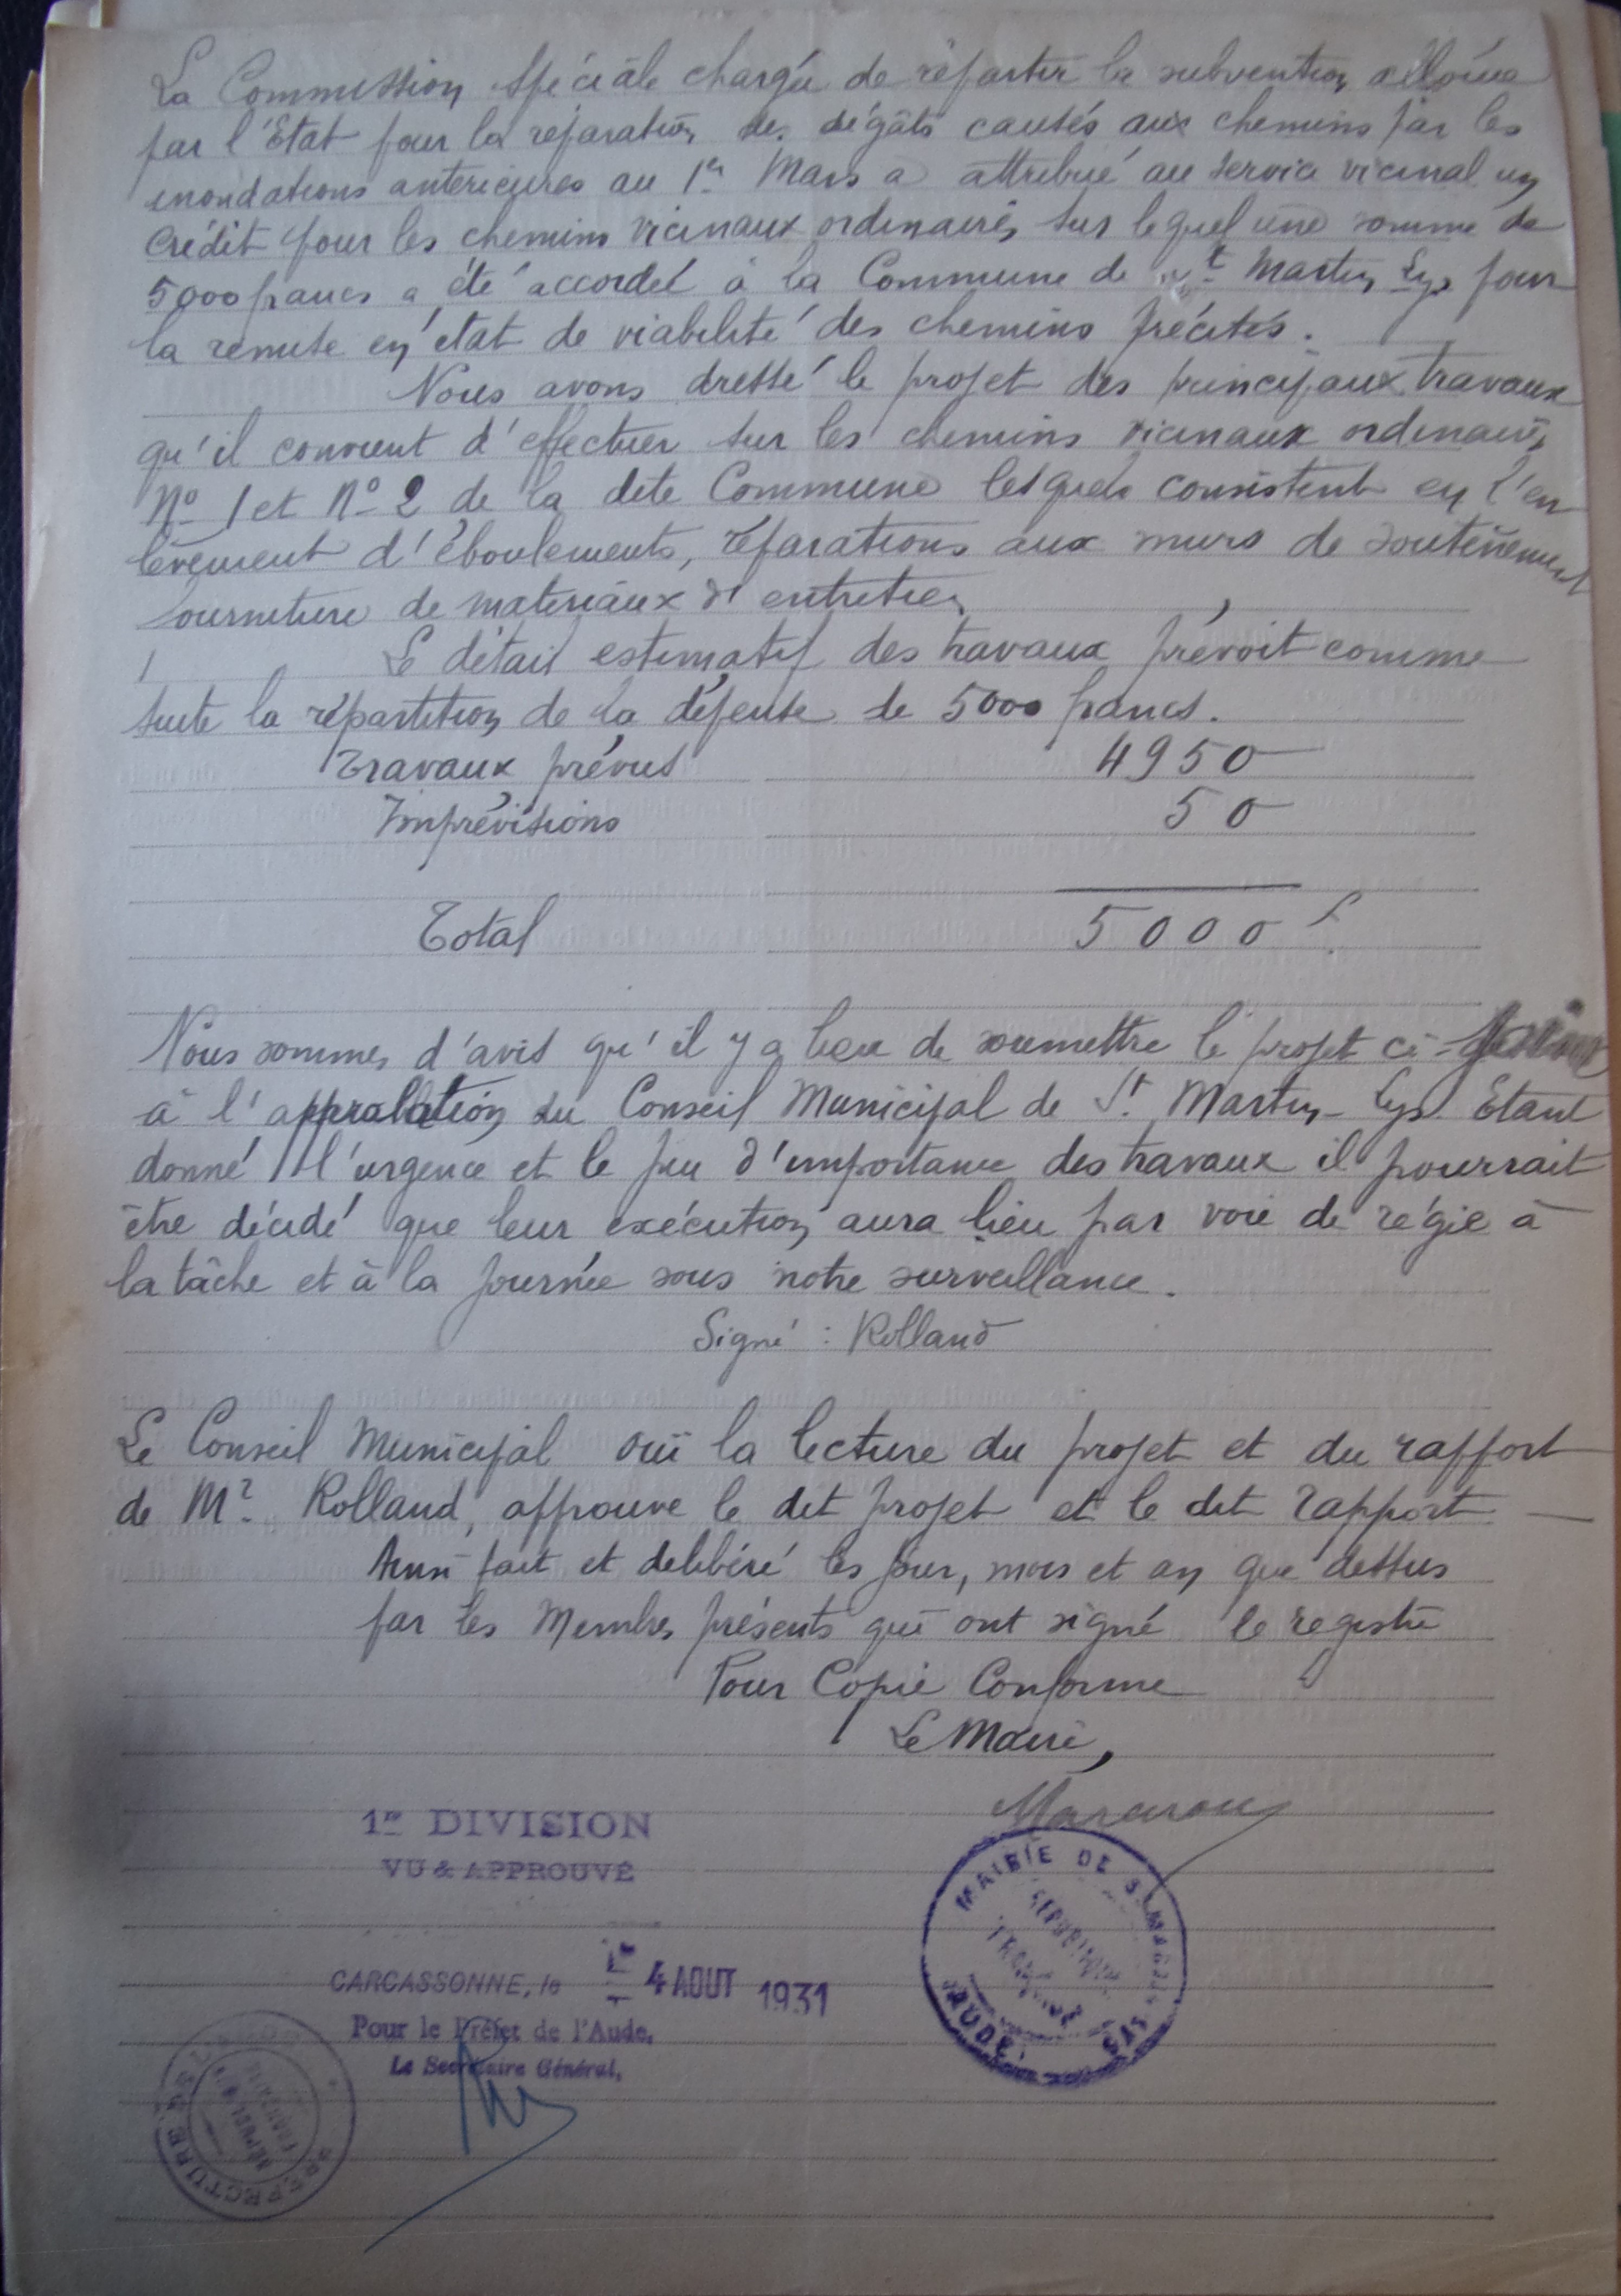 La Commission spéciale chargée de répartir la subvention allouée
par l'Etat pour la réparation des dégâts causés aux chemins par les
inondations antérieures au 1er Mars a attribué au service vicinal un
crédit pour les chemins vicinaux ordinaires sur lequel une somme de
5000 francs a été accordée à la Commune de St Martin Lys pour
la remise en état de viabilité des chemins précités.
Nous avons dressé le projet des principaux travaux
qu'il convient d'effectuer sur les chemins vicinaux ordinaires
No 1 et No 2 de la dite Commune lesquels consistent en l'en
lèvement d'éboulements, réparations aux murs de soutènement
fourniture de matériaux d'entretien
Le détail estimatif des travaux prévoit comme
suite la répartition de la dépense de 5000 francs.
Travaux prévus 4950
Imprévisions 50
Total 5000 f.
Nous sommes d'avis qu'il y a lieu de soumettre le projet ci-
à l'approbation du Conseil Municipal de St. Martin-Lys. Etant
donné l'urgence et le peu d'importance des travaux il pourrait
être décidé que leur exécution aura lieu par voie de régie à
la tâche et à la journée sous notre surveillance.
Signé : Rolland
Le Conseil Municipal ouï la lecture du projet et du rapport
de Mr. Rolland, approuve le dit projet et le dit rapport —
Ainsi fait et délibéré les jour, mois et an que dessus
par les Membres présents qui ont signé le registre
Pour Copie Conforme
Le Maire,
1re DIVISION
VU & APPROUVÉ
MAIRIE DE St MARTIN
REPUBLIQUE
FRANÇAISE
AUDE
CARCASSONNE, le 4 AOUT 1931
Pour le Préfet de l'Aude,
Le Secrétaire Général,
PRÉFECTURE
RÉPUBLIQUE
FRANÇAISE